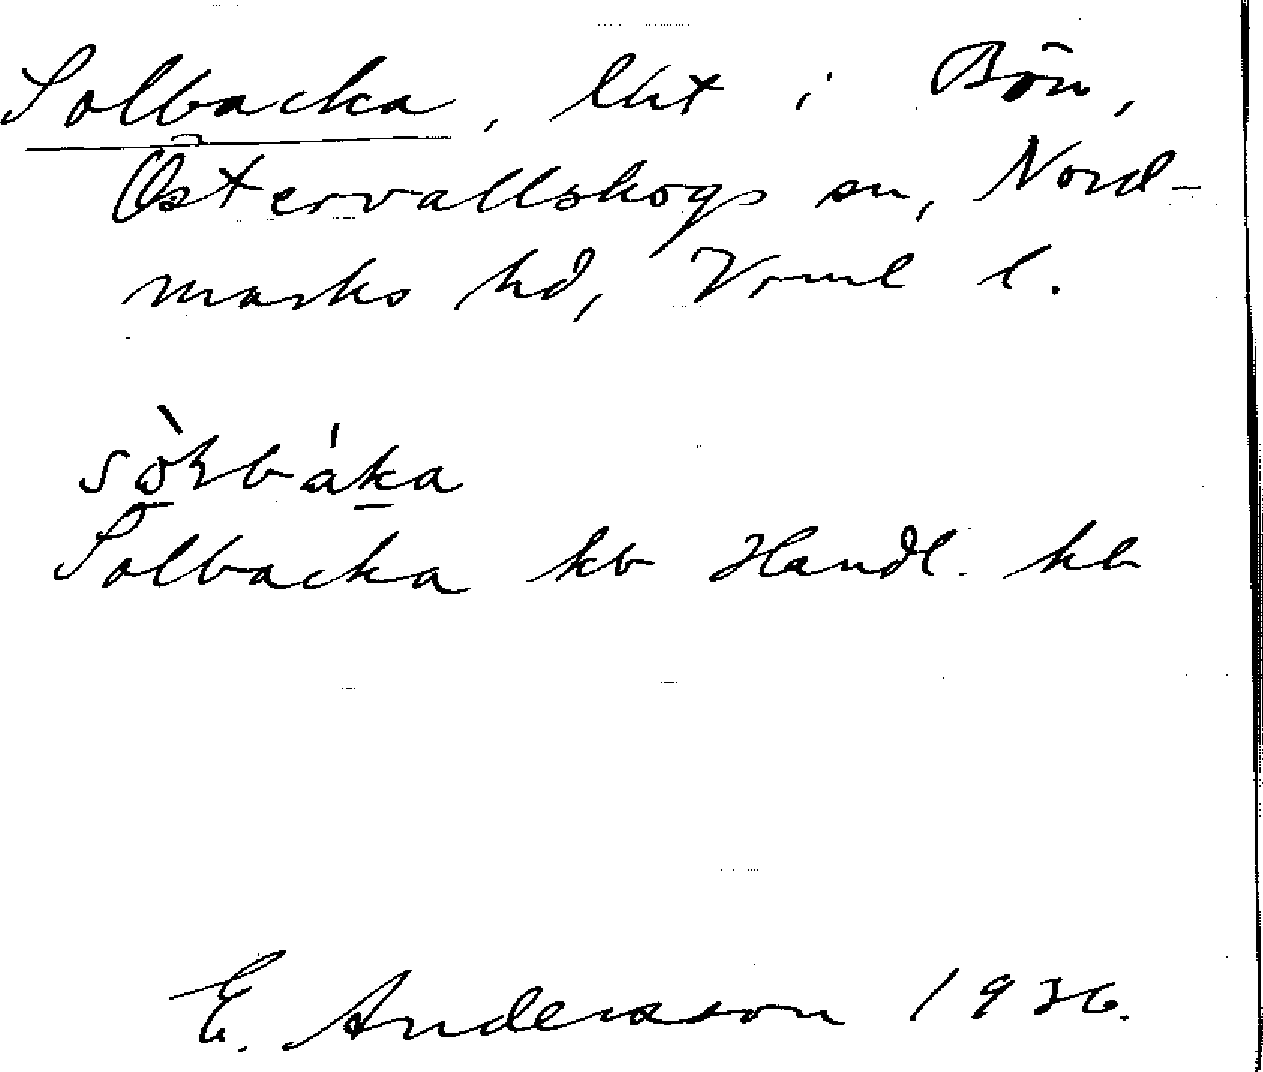 Solbacka, lht i Bön,
Östervallskogs sn, Nord-
marks hd, Vrml l.
Solbacka kb Handl. kb
E. Andersson 1936.